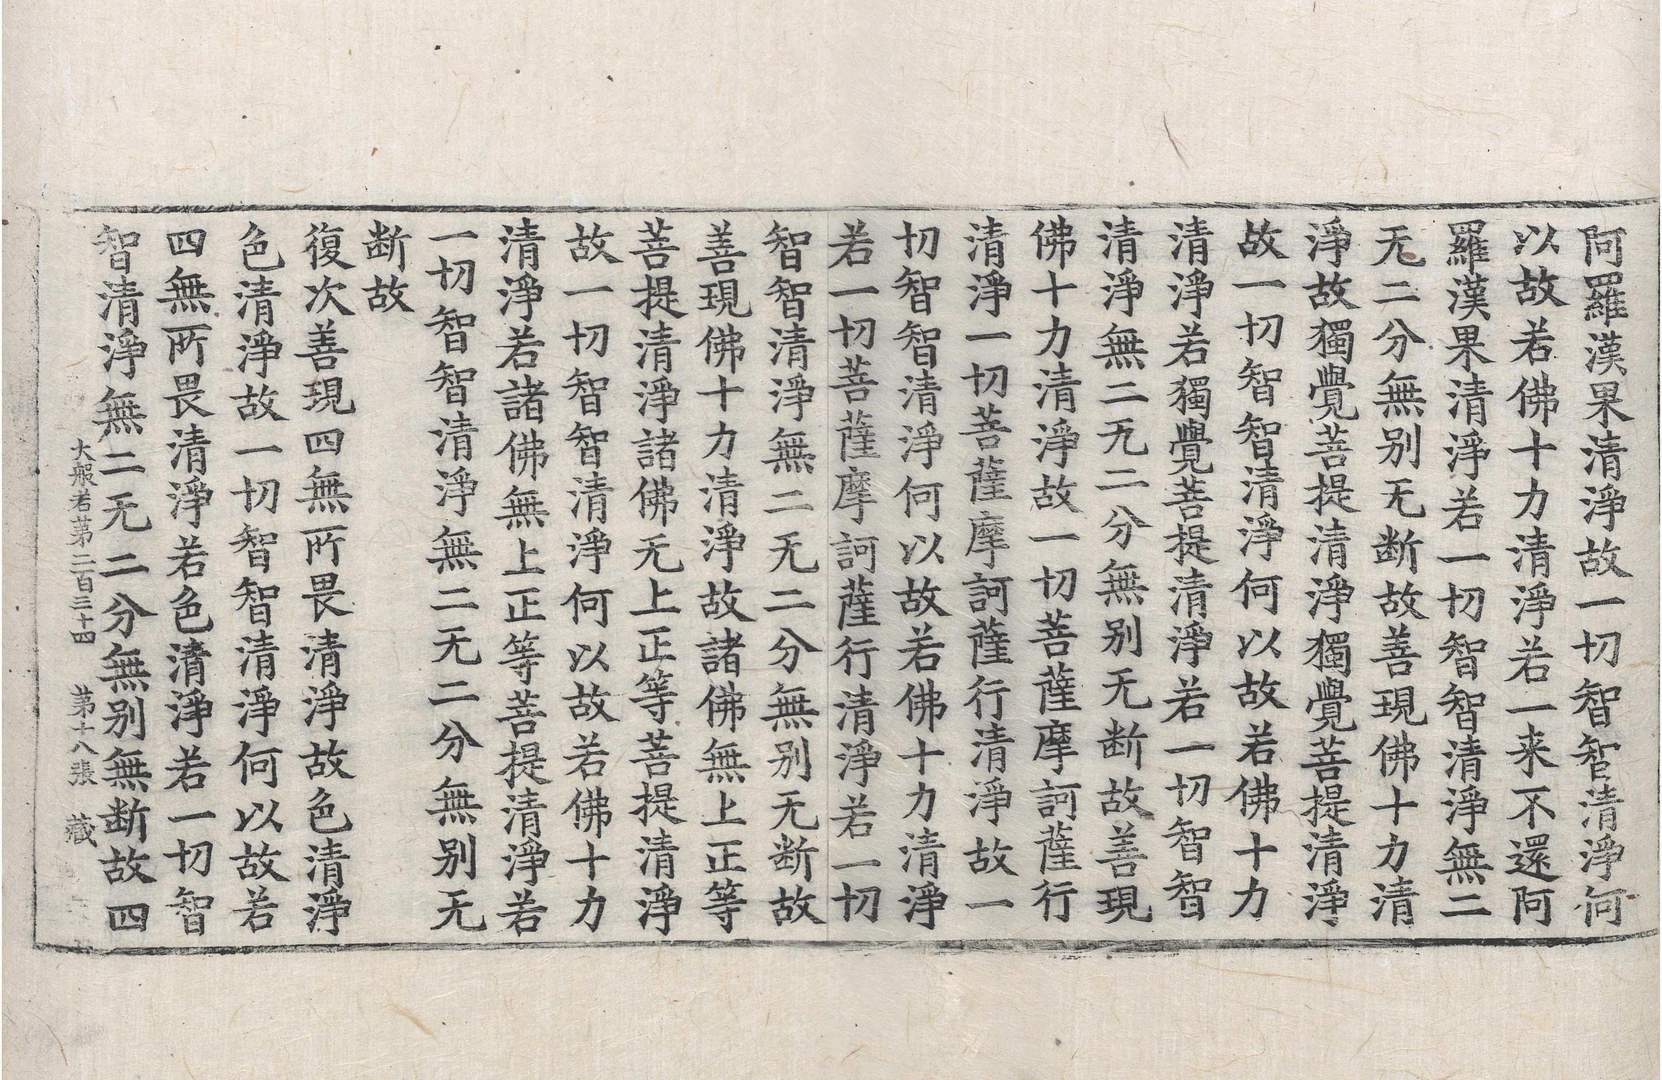 阿羅漢果清淨故一切智智清淨何
以故若佛十力清淨若一来不還阿
羅漢果清淨若一切智智清淨無二
无二分無別无断故善現佛十力清
淨故獨覺菩提清淨獨覺菩提清淨
故一切智智清淨何以故若佛十力
清淨若獨覺菩提清淨若一切智智
清淨無二无二分無別无断故善現
佛十力清淨故一切菩薩摩訶薩行
清淨一切菩薩摩訶薩行清淨故一
切智智清淨何以故若佛十力清淨
若一切菩薩摩訶薩行清淨若一切
智智清淨無二无二分無別无断故
善現佛十力清淨故諸佛無上正等
菩提清淨諸佛无上正等菩提清淨
故一切智智清淨何以故若佛十力
清淨若諸佛無上正等菩提清淨若
一切智智清淨無二无二分無別无
断故
復次善現四無所畏清淨故色清淨
色清淨故一切智智清淨何以故若
四無所畏清淨若色清淨若一切智
智清淨無二无二分無別無断故四
大般若第二百三十四 第十八張 藏